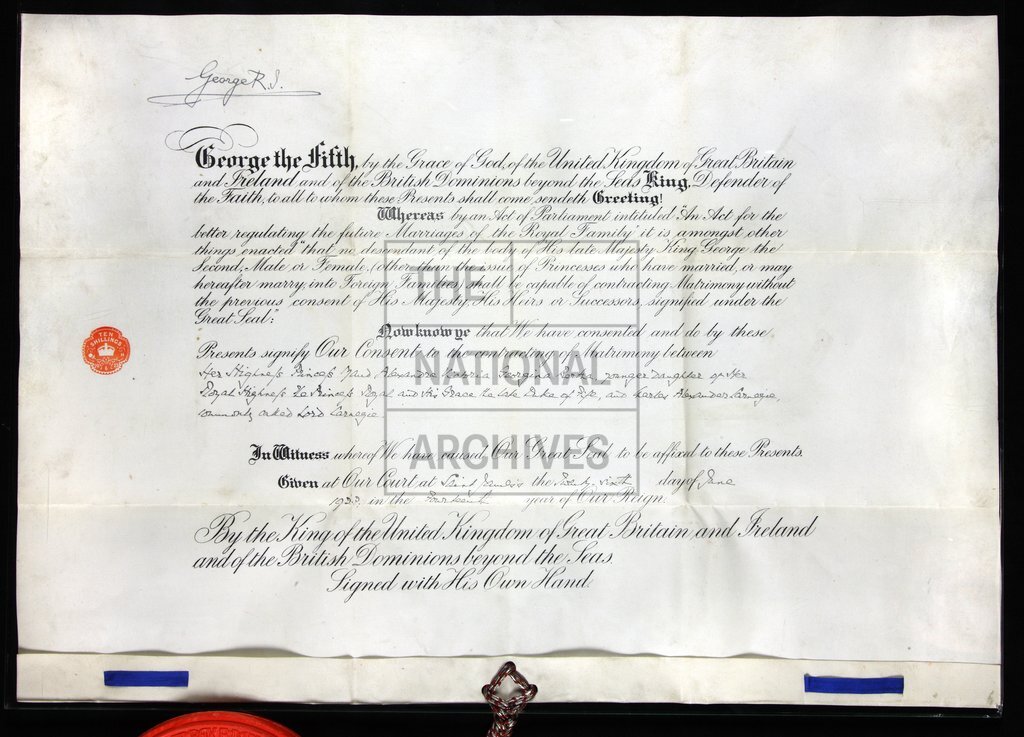 George R.I.
George the Fifth, by the Grace of God, of the United Kingdom of Great Britain
and Ireland and of the British Dominions beyond the Seas King, Defender of
the Faith, to all to whom these Presents shall come, sendeth Greeting!
Whereas by an Act of Parliament intituled "An Act for the
better regulating the future Marriages of the Royal Family" it is amongst other
things enacted "that no descendant of the body of His late Majesty King George the
Second, Male or Female, (other than the issue of Princesses who have married, or may
hereafter marry, into Foreign Families) shall be capable of contracting Matrimony without
the previous consent of His Majesty, His Heirs or Successors, signified under the
Great Seal":
Now know ye that We have consented and do by these
Presents signify Our Consent to the contracting of Matrimony between
Her Highness Princess Maud, Alexandra Victoria Georgina Bertha, younger Daughter of Her
Royal Highness The Princess Royal and His Grace the late Duke of Fife, and Charles Alexander Carnegie,
commonly called Lord Carnegie
In Witness whereof We have caused Our Great Seal to be affixed to these Presents.
Given at Our Court at Saint James's the Twenty sixth day of June
1923 in the Fourteenth year of Our Reign.
By the King of the United Kingdom of Great Britain and Ireland
and of the British Dominions beyond the Seas.
Signed with His Own Hand.
TEN
SHILLINGS
THE
NATIONAL
ARCHIVES